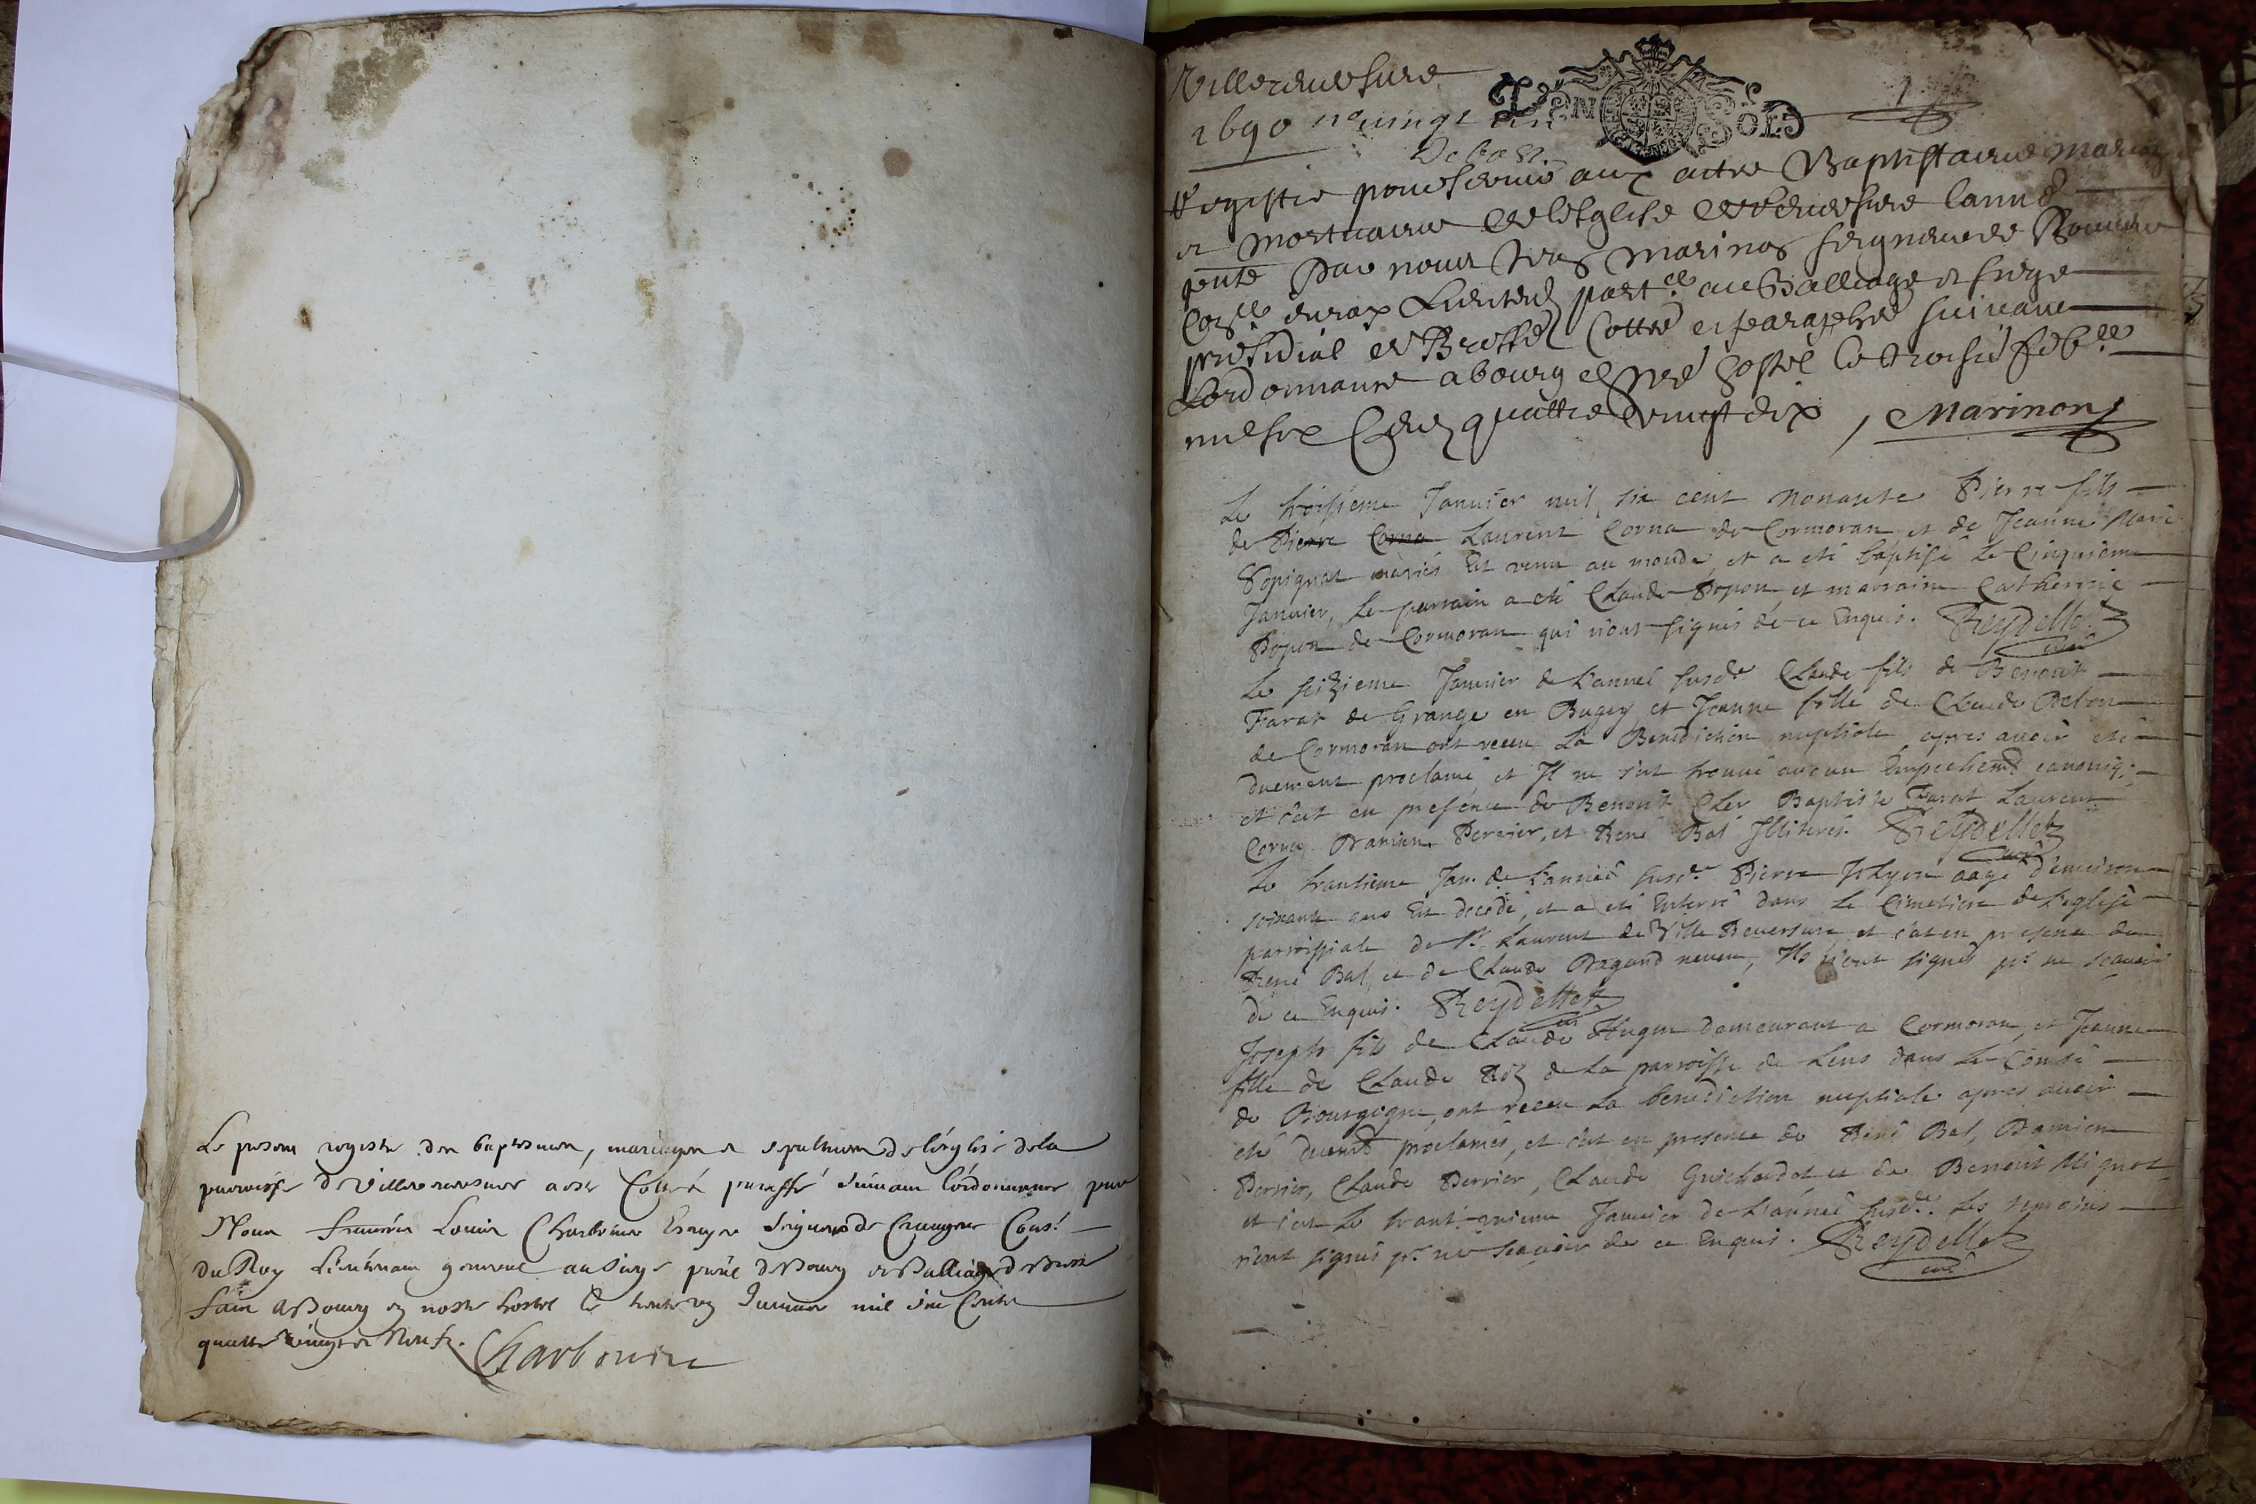 Le present registre des baptesmes, mariages et sepultures de l'eglise de la
parroisse de Villereversure a esté Cotté et paraffé suivant l'ordonnance par
Nous Louis Charbonnier Escuyer Seigneur de Crangeac Cons.r
du Roy Lieutenant general au Siege de Bourg et Balliage de Bresse
fait a Bourg en nostre hostel le Janvier mil six Cents
quatre vingt et Neufz. Charbonnier
Villereversure
1690
DEN SOLS
1
Registre pour servir aux actes Baptistaires mariages
et mortuaires de l'Esglise de Reversure l'année
pnte Par nous Marinon seigneur de
Con.er du roy Lieuten part.er au Balliage et siege
presidial de Bresse Cotté et paraphé suivant
L'ordonnance a bourg en hostel le troisie febvr
mil six Cens quattre vingt dix, Marinon
Le troisieme Janvier mil six cent nonante Pierre fils
de Pierre Corna Laurent Corna de Cormoran et de Jeanne Marie
Popignat mariés Est venu au monde, et a eté baptisé le Cinquieme
Janvier, le parrain a eté Claude Popon et marraine Catherine
Popon de Cormoran qui n'ont signés de ce Enquis. Reydellet
curé
Le seizieme Janvier de l'année susde Claude fils de Benoit
Farat de Grange en Bugey et Jeanne fille de Claude Debon
de Cormoran ont receu la Benediction nuptiale apres avoir eté
duement proclamé et Il ne s'est trouvé aucun Empechemt canoniq;
et c'est en presence de Benoit Cler Baptiste Farat Laurent
Corna Damien Perrier, et René Bal Illiterés. Reydellet
curé
Le trantieme Jan. de l'année susde Pierre aagé d'environ
soixante ans Est decedé, et a eté Enterré dans le Cimetiere de l'eglise
parroissiale de St Laurent de Ville Reversure et c'est en presence de
René Bal, et de Claude Dagand neveu, Ils n'ont signés pr ne scavoir
de ce Enquis. Reydellet
curé
Joseph fils de Claude Hugon demeurant a Cormoran, et Jeanne
fille de Claude de la parroisse de Lens dans le Comté
de Bourgogne, ont receu la benediction nuptiale apres avoir
eté duemt proclamés, et c'est en presence de René Bal, Damien
Perrier, Claude Perrier, Claude Guichardot et de Benoit Mignot
et c'est le trant-unieme Janvier de l'année susde. Les temoins
n'ont signés pr ne scavoir de ce Enquis. Reydellet
curé